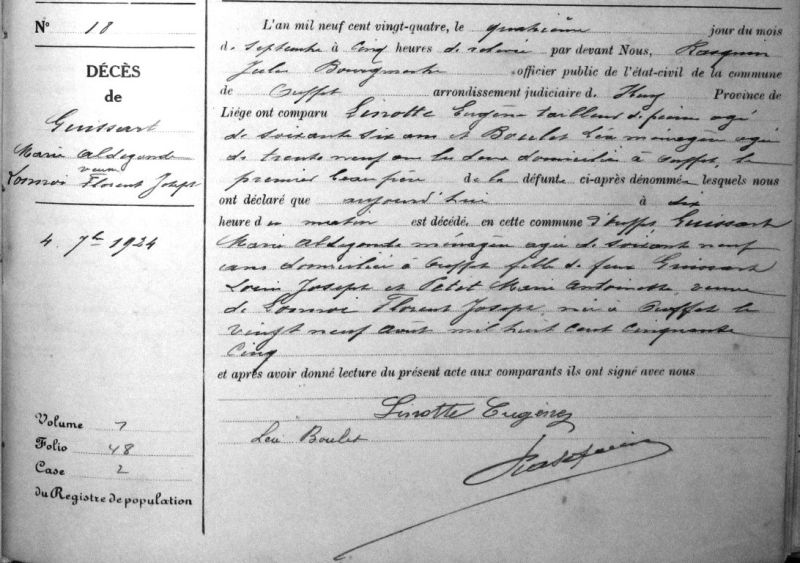 N° 18
DÉCÈS
de
Guissart
Marie Aldegonde
veuve
Lonnoi Florent Joseph
4. 7bre 1924
Volume 7
Folio 48
Case 2
du Registre de population
L'an mil neuf cent vingt-quatre, le quatrième jour du mois
de septembre à cinq heures de relevée par devant Nous, Rasquin
Jules officier public de l'état-civil de la commune
de Ouffet arrondissement judiciaire de Huy Province de
Liége ont comparu Linotte Eugène tailleur de pierre agé
de soixante six ans et Boulet Léa ménagère agée
de trente neuf ans les deux domiciliés à Ouffet, le
premier beau frère de la défunte ci-après dénommée lesquels nous
ont déclaré que aujourd'hui à dix
heure du matin est décédé, en cette commune d'Ouffet Guissart
Marie Aldegonde ménagère agée de soixante neuf
ans domiciliée à Ouffet fille de feux Guissart
Louis Joseph et Petet Marie Antoinette, veuve
de Lonnoi Florent Joseph, née à Ouffet le
vingt neuf aout mil huit cent cinquante
cinq
et après avoir donné lecture du présent acte aux comparants ils ont signé avec nous
Linotte Eugène
Léa Boulet
Jules Rasquin